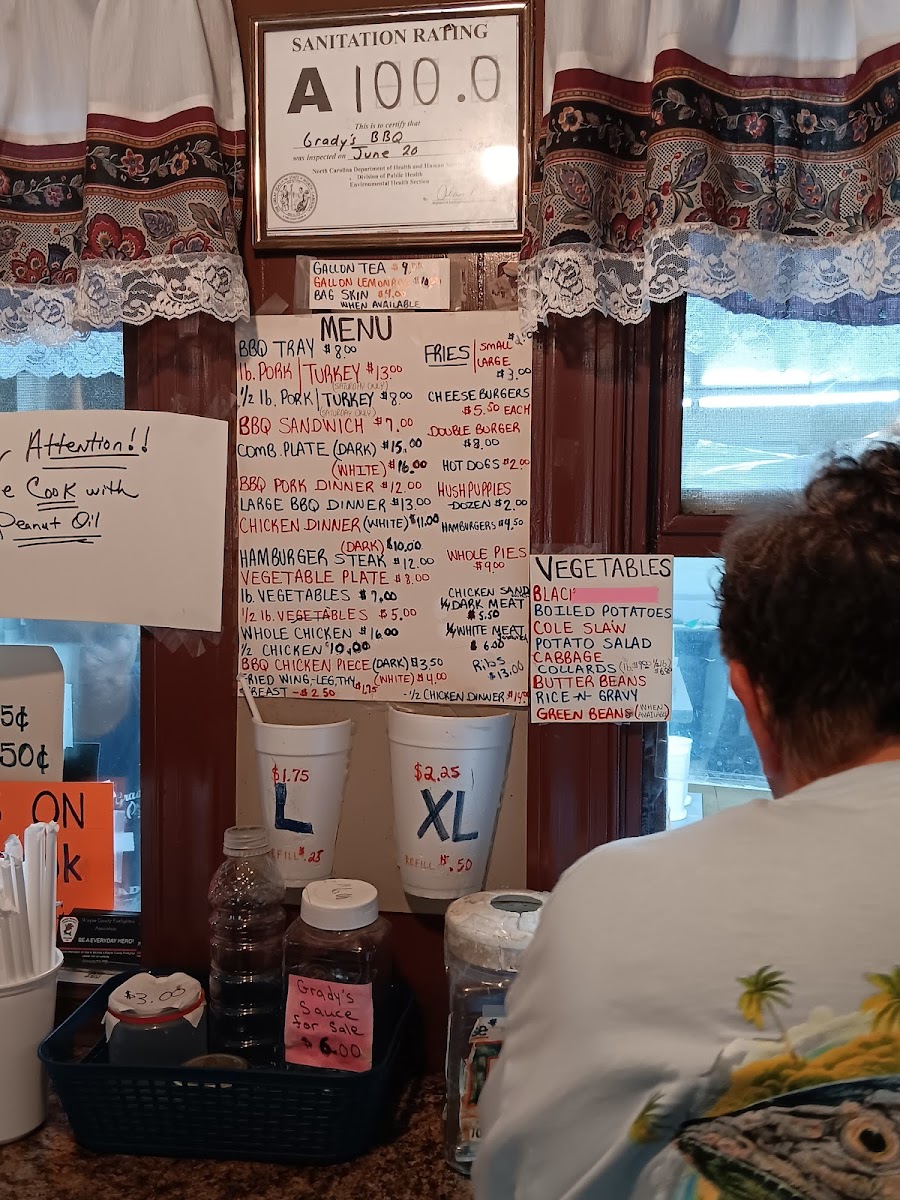 SANITATION RATING
A 100.0
This is to certify that
Grady's BBQ
was inspected on June 20
North Carolina Department of Health and Human
Division of Public Health
Environmental Health Section
GALLON TEA $9.
GALLON LEMON
BAG SKIN $4.00
WHEN AVAILABLE
MENU
BBQ TRAY $8.00
lb. PORK | TURKEY $13.00
(SATURDAY ONLY)
1/2 lb. PORK | TURKEY $8.00
(SATURDAY ONLY)
BBQ SANDWICH $7.00
COMB. PLATE (DARK) $15.00
(WHITE) $16.00
BBQ PORK DINNER $12.00
LARGE BBQ DINNER $13.00
CHICKEN DINNER (WHITE) $11.00
(DARK) $10.00
HAMBURGER STEAK $12.00
VEGETABLE PLATE $8.00
lb. VEGETABLES $7.00
1/2 lb. VEGETABLES $5.00
WHOLE CHICKEN $16.00
1/2 CHICKEN $10.00
BBQ CHICKEN PIECE (DARK) $3.50
(WHITE) $4.00
FRIED WING-LEG, THY $1.75
BREAST - $2.50
- 1/2 CHICKEN DINNER
FRIES | SMALL
LARGE
$3.00
CHEESEBURGERS
$5.50 EACH
DOUBLE BURGER
$8.00
HOT DOGS $2.00
HUSHPUPPIES
-DOZEN $2.00
HAMBURGERS $4.50
WHOLE PIES
$9.00
CHICKEN SAND
1/4 DARK MEAT
$5.50
1/4 WHITE MEAT
$6.00
Ribs
$13.00
VEGETABLES
BLACK
BOILED POTATOES
COLE SLAW
POTATO SALAD
CABBAGE
COLLARDS
BUTTER BEANS
RICE -N- GRAVY
GREEN BEANS (WHEN AVAILABLE)
Attention!!
e Cook with
Peanut Oil
5¢
50¢
ON
k
BE A EVERYDAY HERO!
$1.75
L
REFILL $.25
$2.25
XL
REFILL $.50
$3.00
Grady's
Sauce
for Sale
$6.00